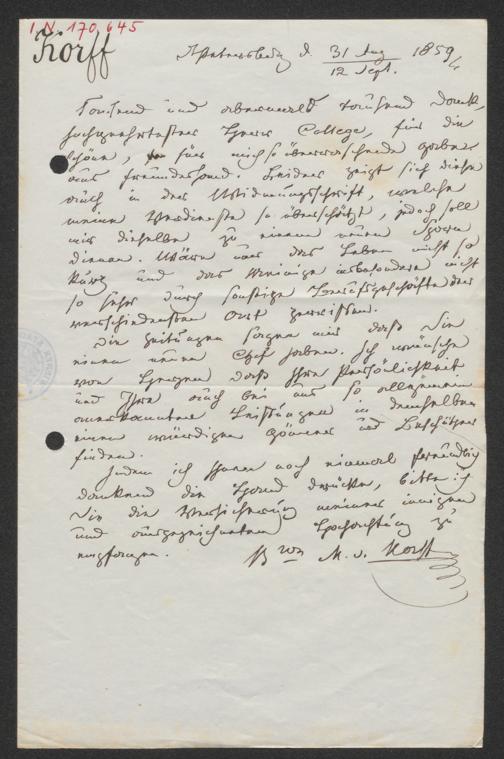 I. N. 170,645
Korff
St Petersburg d. 31 Aug / 12 Sept. 1859
Tausend und abermals tausend Dank,
hochgeehrtester Herr College, für die
schöne, für mich so überraschende Gabe
aus Freundeshand. Leider zeigt sich diese
auch in der Widmungsschrift, welche
meine Verdienste so überschätzt, jedoch soll
mir dieselbe zu einem neuen Sporn
dienen. Wäre nur das Leben nicht so
kurz und das Meinige insbesondere nicht
so sehr durch sonstige Berufsgeschäfte der
verschiedensten Art zerrissen.
Die Zeitungen sagen mir daß Sie
einen neuen Chef haben. Ich wünsche
von Herzen daß Ihre Persönlichkeit
und Ihre auch bei uns so allgemein
anerkannten Leistungen in demselben
einen würdigen Gönner und Beschützer
finden.
Indem ich Ihnen noch einmal freundlich
dankend die Hand drücke, bitte ich
Sie die Versicherung meiner innigen
und ausgezeichneten Hochachtung zu
empfangen.
Bron M. v. Korff